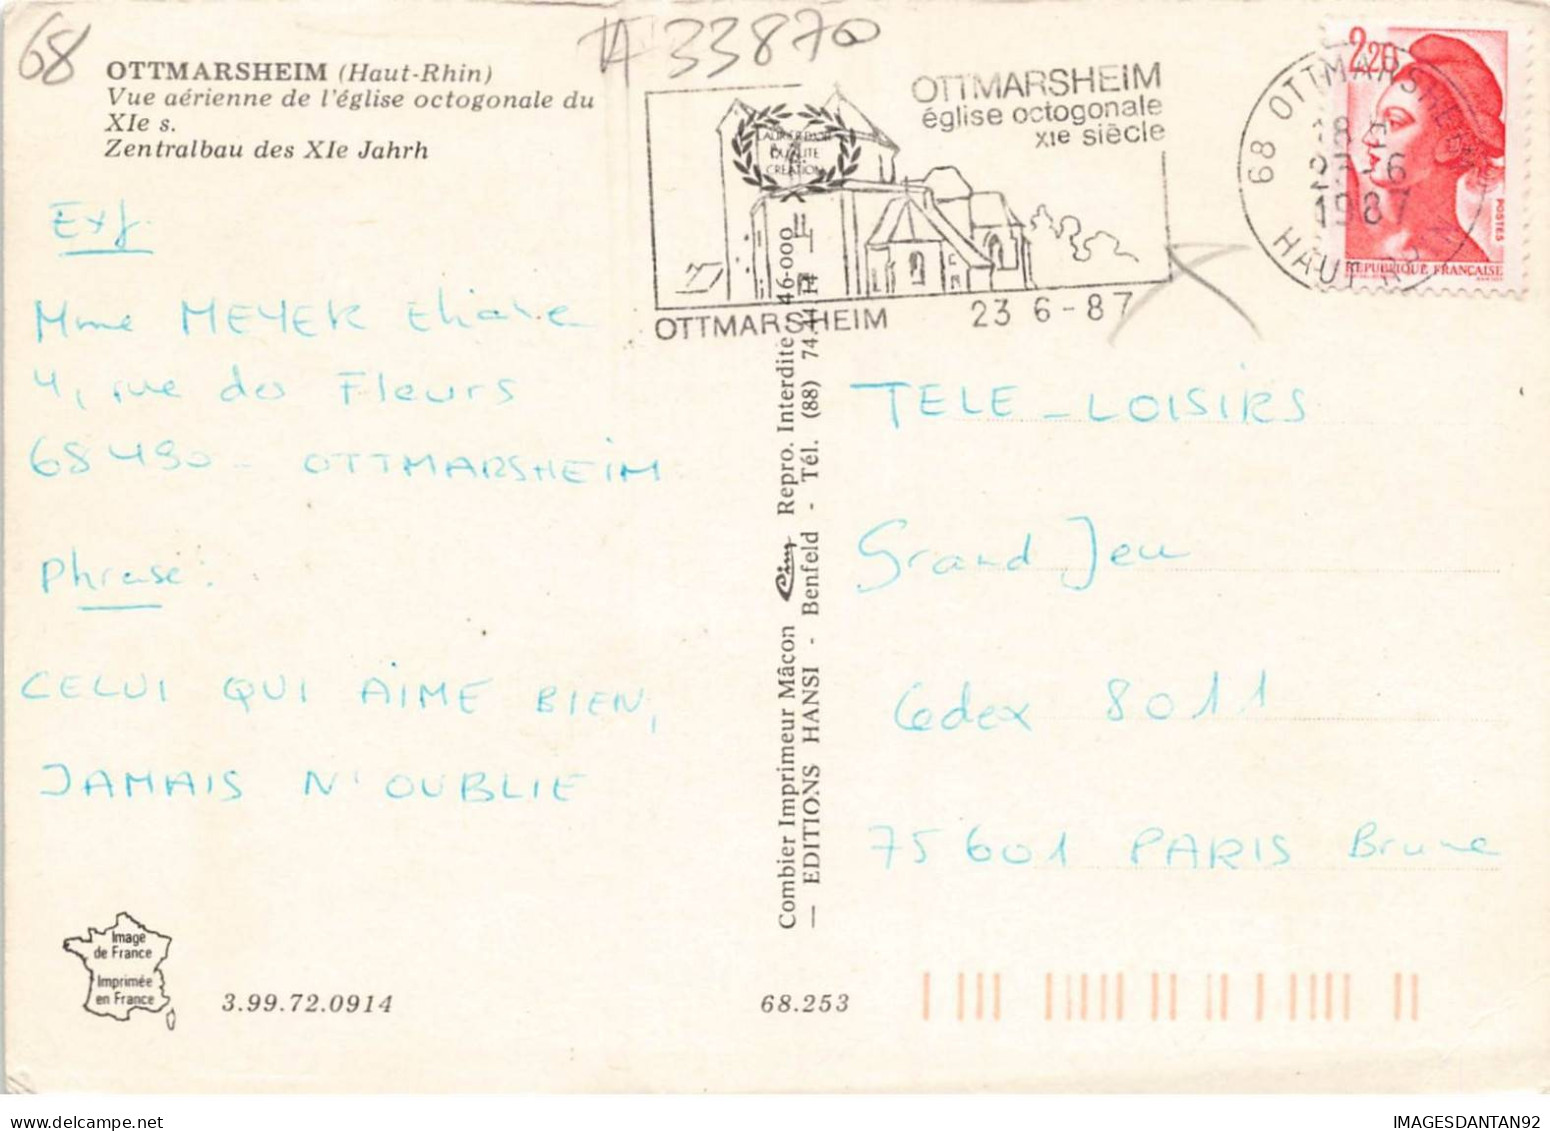 68
A 33870
OTTMARSHEIM (Haut-Rhin)
Vue aérienne de l'église octogonale du
XIe s.
Zentralbau des XIe Jahrh
OTTMARSHEIM
église octogonale
XIe siècle
OTTMARSHEIM 23 6-87
68 OTTMARSHEIM
18 H
23-6
1987
HAUT-RHIN
2,20
POSTES
REPUBLIQUE FRANÇAISE
QUALITE
CREATION
Exp.
Mme MEYER Eliane
4, rue des Fleurs
68490 - OTTMARSHEIM
Phrase:
CELUI QUI AIME BIEN,
JAMAIS N'OUBLIE
TELE-LOISIRS
Grand Jeu
Cedex 8011
75601 PARIS Brune
Combier Imprimeur Mâcon Cim Repro. Interdite 46-000
— EDITIONS HANSI - Benfeld - Tél. (88) 74.44.14
Image
de France
Imprimée
en France
3.99.72.0914
68.253
IMAGESDANTAN92